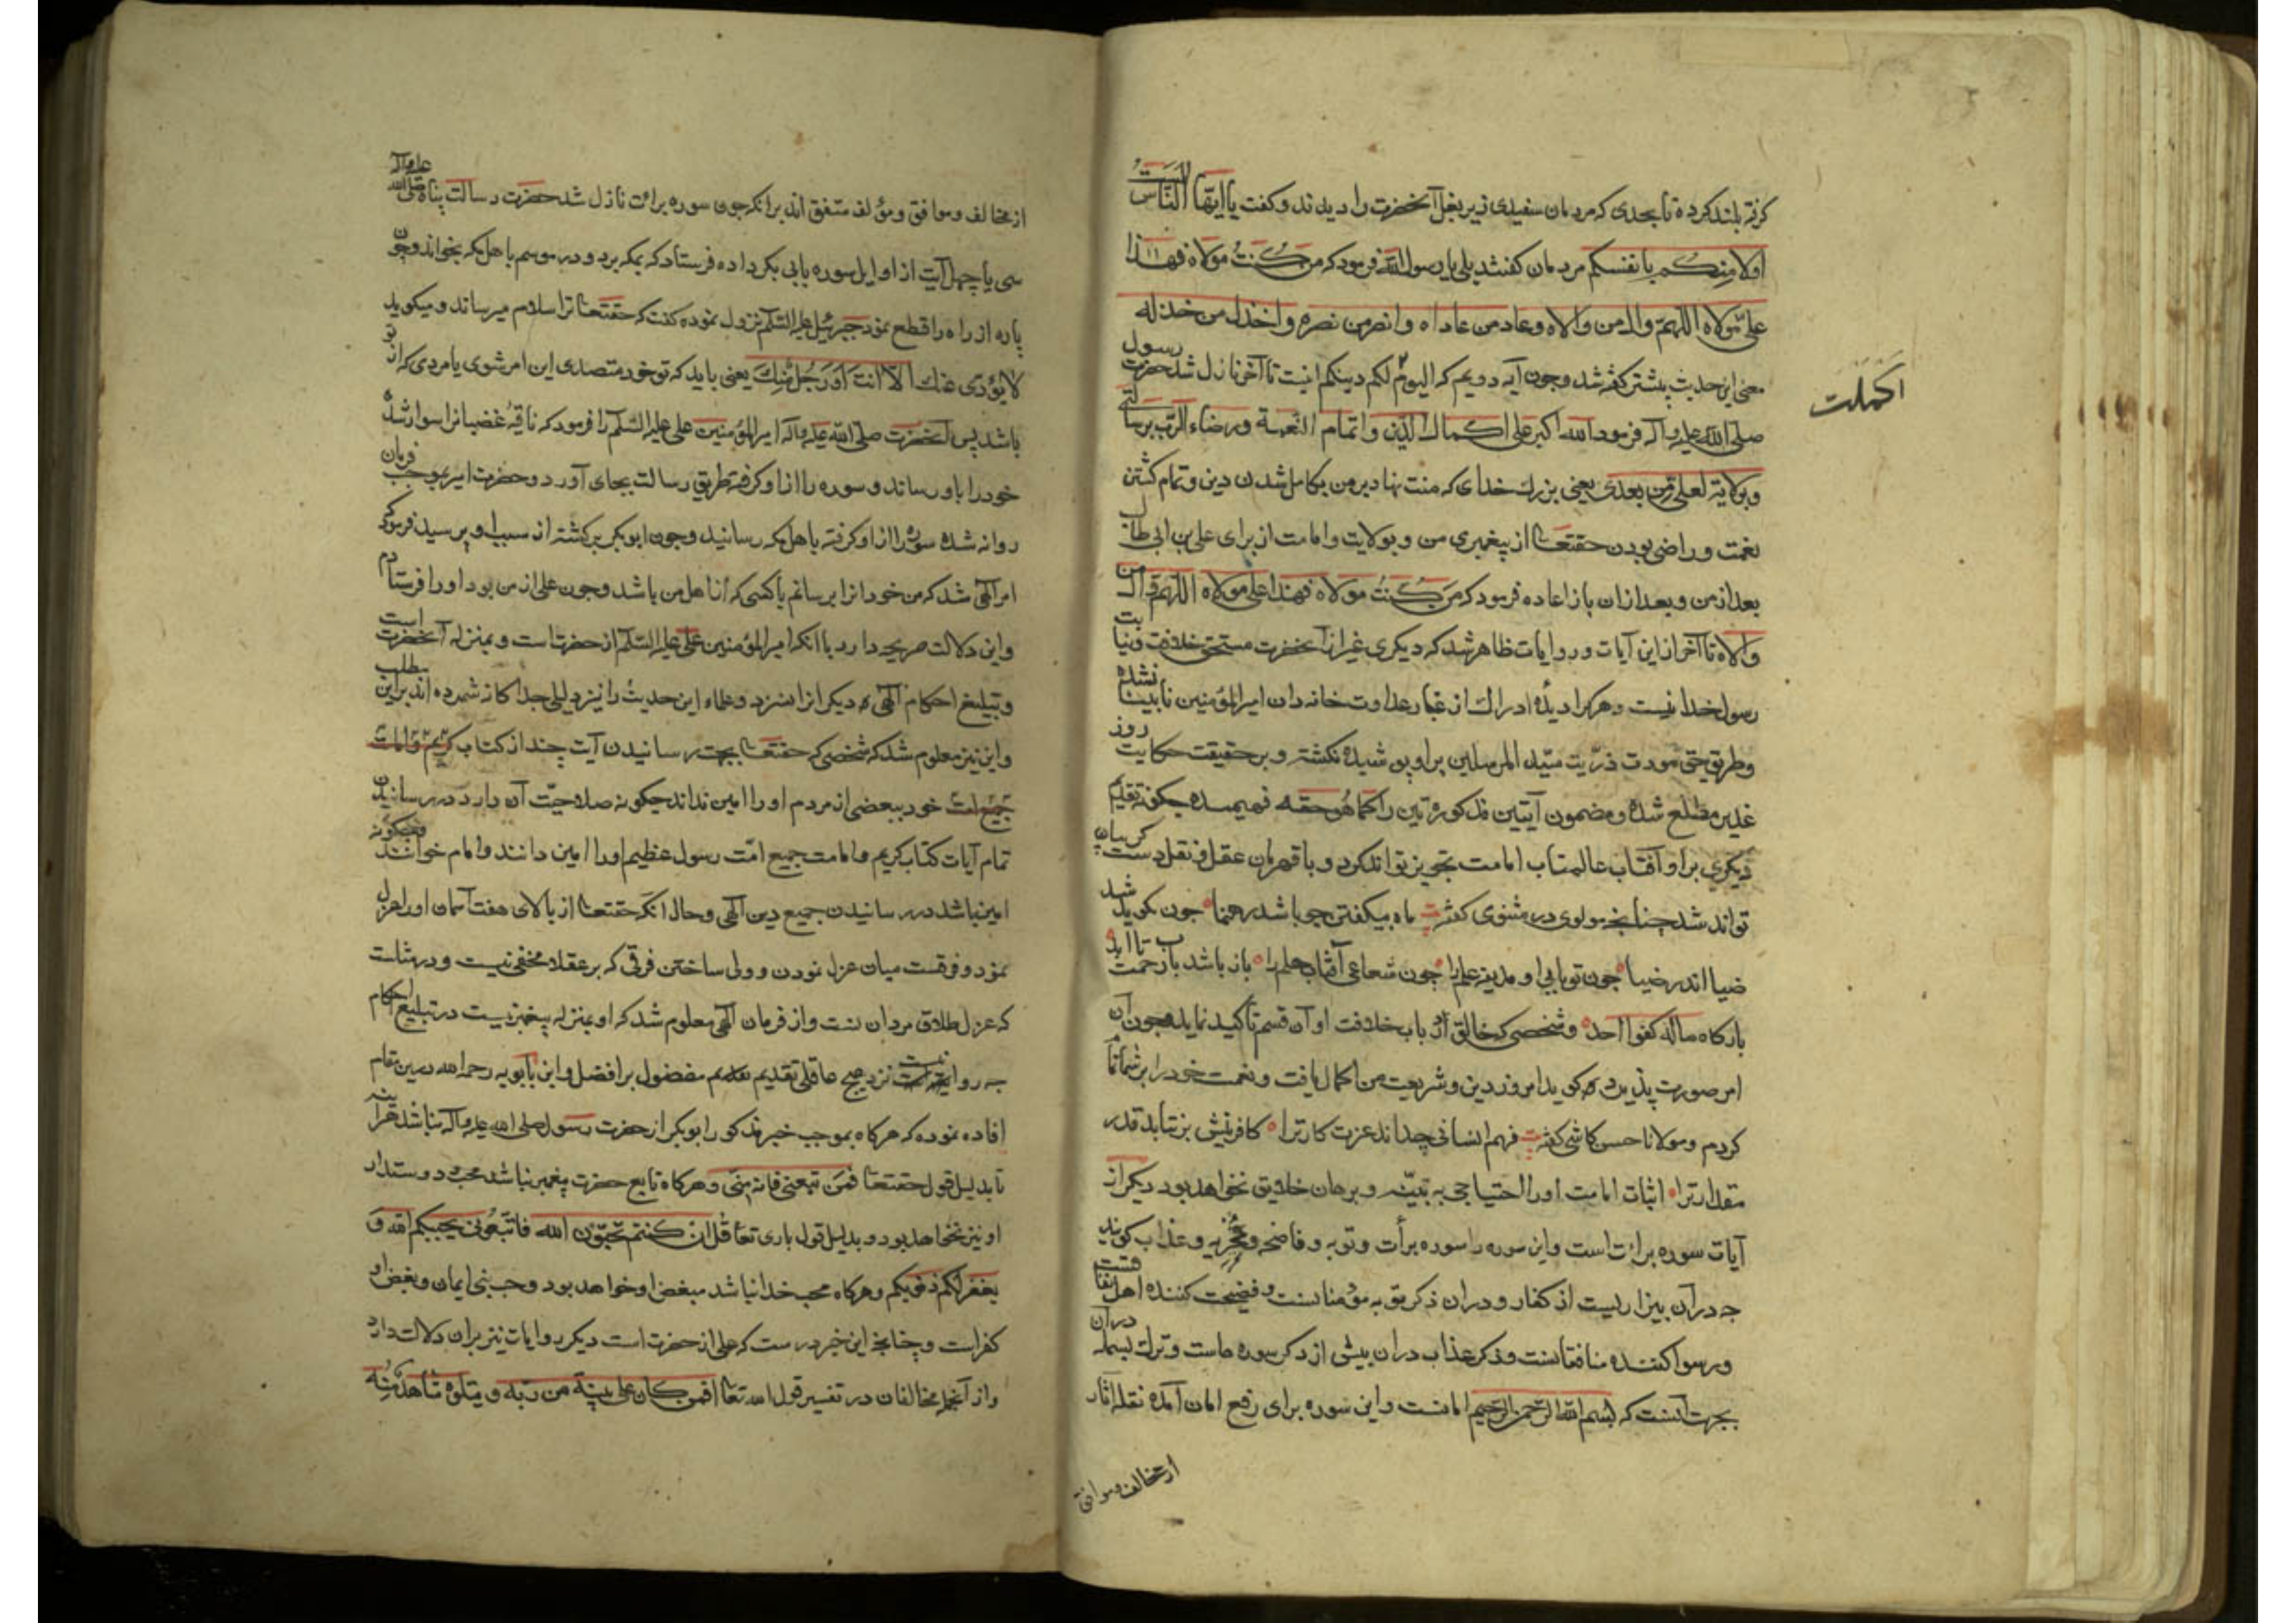 کرفته بلند کرده تا بحدی که مردمان سفیدی زیر بغل آنحضرت را دیدند و کفت یا ایها الناس الست
اولا منکم بانفسکم مردمان کفتند بلی یا رسول الله فرمود که من کنت مولاه فهذا
علی مولاه اللهم وال من والاه و عاد من عاداه و انصر من نصره و اخذل من خذله
معنی این حدیث پیشتر کفته شد و چون آیه دویم که الیوم لکم دینکم اینست تا آخر نازل شد حضرت رسول
اکملت
صلی الله علیه و آله فرمود الله اکبر علی اکمال الدین و اتمام النعمة و رضاء الرب برسالتی
و بولایة لعلی من بعدی یعنی بزرك خدای که منت نهاد بر من بکامل شدن دین و تمام کشتن
نعمت و راضی بودن حقتعا از پیغمبری من و بولایت و امامت از برای علی بن ابی طالب
بعد از من و بعد از ان باز اعاده فرمود که من کنت مولاه فهذا علی مولاه اللهم وال من
والاه تا آخر از این آیات و روایات ظاهر شد که دیکری غیر از آنحضرت مستحق خلافت و نیابت
رسول خدا نیست و هر کرا دیدۀ ادراك از غبار عداوت خانه دان امیر المؤمنین نابینا نشده
و طریق حق مودت ذریت سید المرسلین بر او پوشیده نکشته و بر حقیقت حکایت روز
غدیر مطلع شده و مضمون آیتین مذکورتین را کما هو حقه فهمیده چکونه تقدیم
دیکری بر او آفتاب عالمتاب امامت تجویز تواند کرد و با قهرمان عقل و نقل دست کریبان
تواند شد چنانچه مولوی در مثنوی کفته ماه میکفتن چه باشد رهنما چون کوید شد
ضیا اندر ضیا چون تو بابی او مدینه علم را چون شعاعی آفتاب حلم را باز باش ای باب رحمت تا ابد
بارکاه ما له کفوا احد و شخصی که خالق از باب خلافت او آن قسم تاکید نماید و چون آن
امر صورت پذیرد که کوید امروز دین و شریعت من اکمال یافت و نعمت خود را بر شما تمام
کردم و مولانا حسن کاشی کفته فهم انسانی چه داند عزت کار ترا کافرینش بر نتابد قدر
مقدار ترا اثبات امامت او را احتیاجی به بینه و برهان خلایق نخواهد بود دیکر از
آیات سوره براتست و این سوره را سوره برأت و توبه و فاضحه و مخزیه و عذاب کویند
چه در آن بیزاریست از کفار و در ان ذکر توبه مؤمنانست و فضیحت کننده اهل نفاقست
و رسوا کننده منافقانست و ذکر عذاب در ان بیشی از ذکر سوره هاست و ترك بسمله در آن
بجهت آنست که بسم الله الرحمن الرحیم امانست و این سوره برای رفع امان آمده نقله آثار
از مخالف و موافق
از مخالف و موافق و مؤلف متفق اند بر انکه چون سوره برائت نازل شد حضرت رسالت پناه صلی الله علیه و آله
سی یا چهل آیت از اوایل سوره بابی بکر داده فرستاد که بمکه برد و در موسم باهل مکه بخواند و چون
پاره از راه را قطع نمود جبرئیل علیه السلام نزول نموده کفت که حقتعا ترا سلام میرساند و میکوید
لا یؤدی عنك الا انت او رجل منك یعنی باید که تو خود متصدی این امر شوی یا مردی که از تو
باشد پس آنحضرت صلی الله علیه و آله امیر المؤمنین علی علیه السلام را فرمود که ناقۀ غضبانرا سوار شده
خود را باو رساند و سوره را از او کرفته طریق رسالت بجای آورد و حضرت امیر بموجب فرمان
روانه شده سوره را از او کرفته باهل مکه رسانید و چون ابو بکر برکشته از سبب او پرسید فرمود که
امر الهی شد که من خود انرا برسانم یا کسی که از اهل من باشد و چون علی از من بود او را فرستادم
و این دلالت صریحه دارد با انکه امیر المؤمنین علی علیه السلام از حضرت است و بمنزله آنحضرت است
و تبلیغ احکام الهی به دیکر انرا نسزد و علماء این حدیث را نیز دلیلی جداکانه شمرده اند بر این مطلب
و این نیز معلوم شد که شخصی که حقتعا بجهت رسانیدن آیت چند از کتاب کریم و امامت
جمیع امت خود ببعضی از مردم او را امین نداند چکونه صلاحیت آن دارد در رسانیدن
تمام آیات کتاب کریم و امامت جمیع امت رسول عظیم او را امین دانند و امام خوانند و چکونه
امین باشد در رسانیدن جمیع دین الهی و حال انکه حقتعا از بالای هفت آسمان او را عزل
نمود و فرقست میان عزل نمودن و ولی ساختن فرقی که بر عقلا مخفی نیست و در مثلست
که عزل طلاق مردانست و از فرمان الهی معلوم شد که او بمنزله پیغمبر نیست در تبلیغ احکام
چه روا نیست نزد هیچ عاقلی تقدیم مفضول بر افضل و ابن بابویه رحمه الله درین مقام
افاده نموده که هر کاه بموجب خبر مذکور ابو بکر از حضرت رسول صلی الله علیه و آله نباشد
تا بدلیل قول حقتعا فمن تبعنی فانه منی و هر کاه تابع حضرت پیغمبر نباشد محب و دوستدار
او نیز نخواهد بود و بدلیل قول باری تعا قل ان کنتم تحبون الله فاتبعونی یحببکم الله و
یغفر لکم ذنوبکم و هر کاه محب خدا نباشد مبغض او خواهد بود و حب نبی ایمان و بغض او
کفر است و چنانچه این خبر درست که علی از حضرت است دیکر روایات نیز بران دلالت دارد
و از آنجمله مخالفان در تفسیر قول الله تعا افمن کان علی بینة من ربه و یتلوه شاهد منه